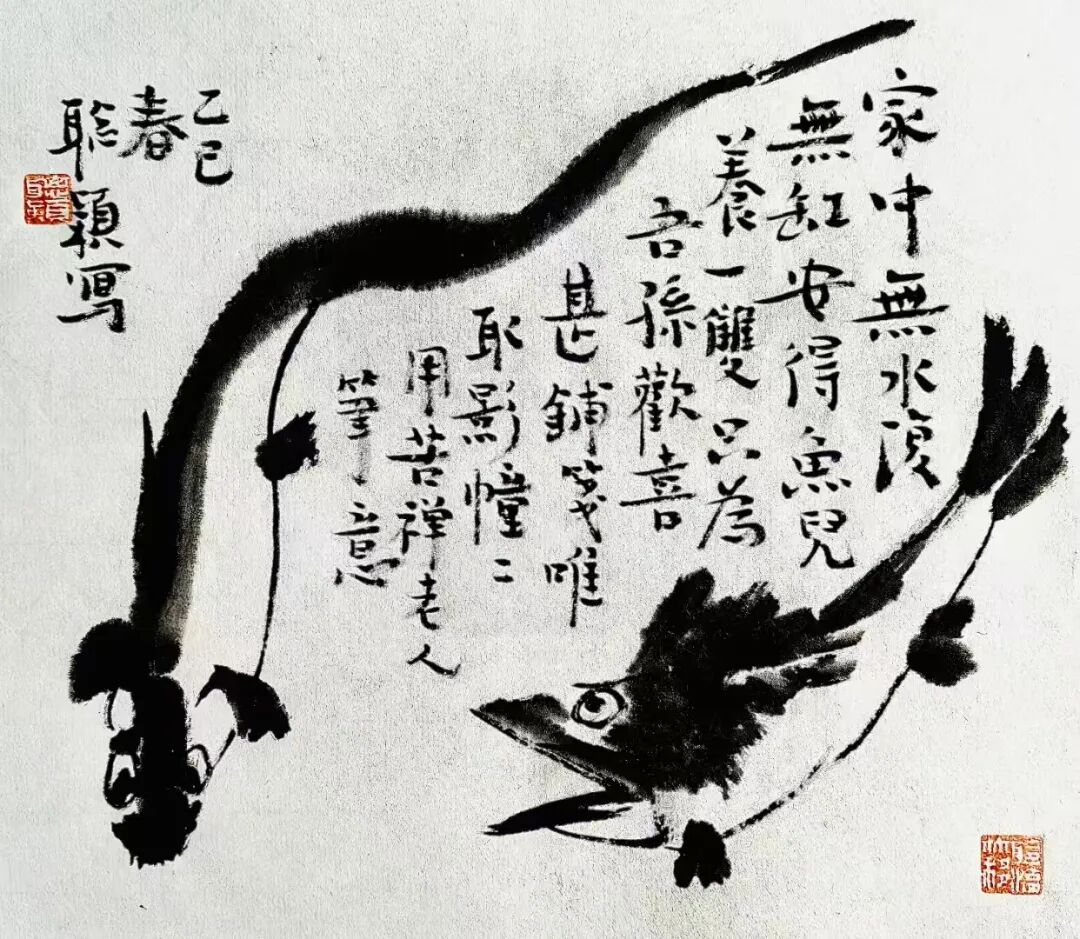 家中無水復
無缸安得魚兒
養一雙只為
吾孫歡喜
甚鋪箋唯
取影幢〻
用苦禅老人
筆意
乙巳
春
穎寫